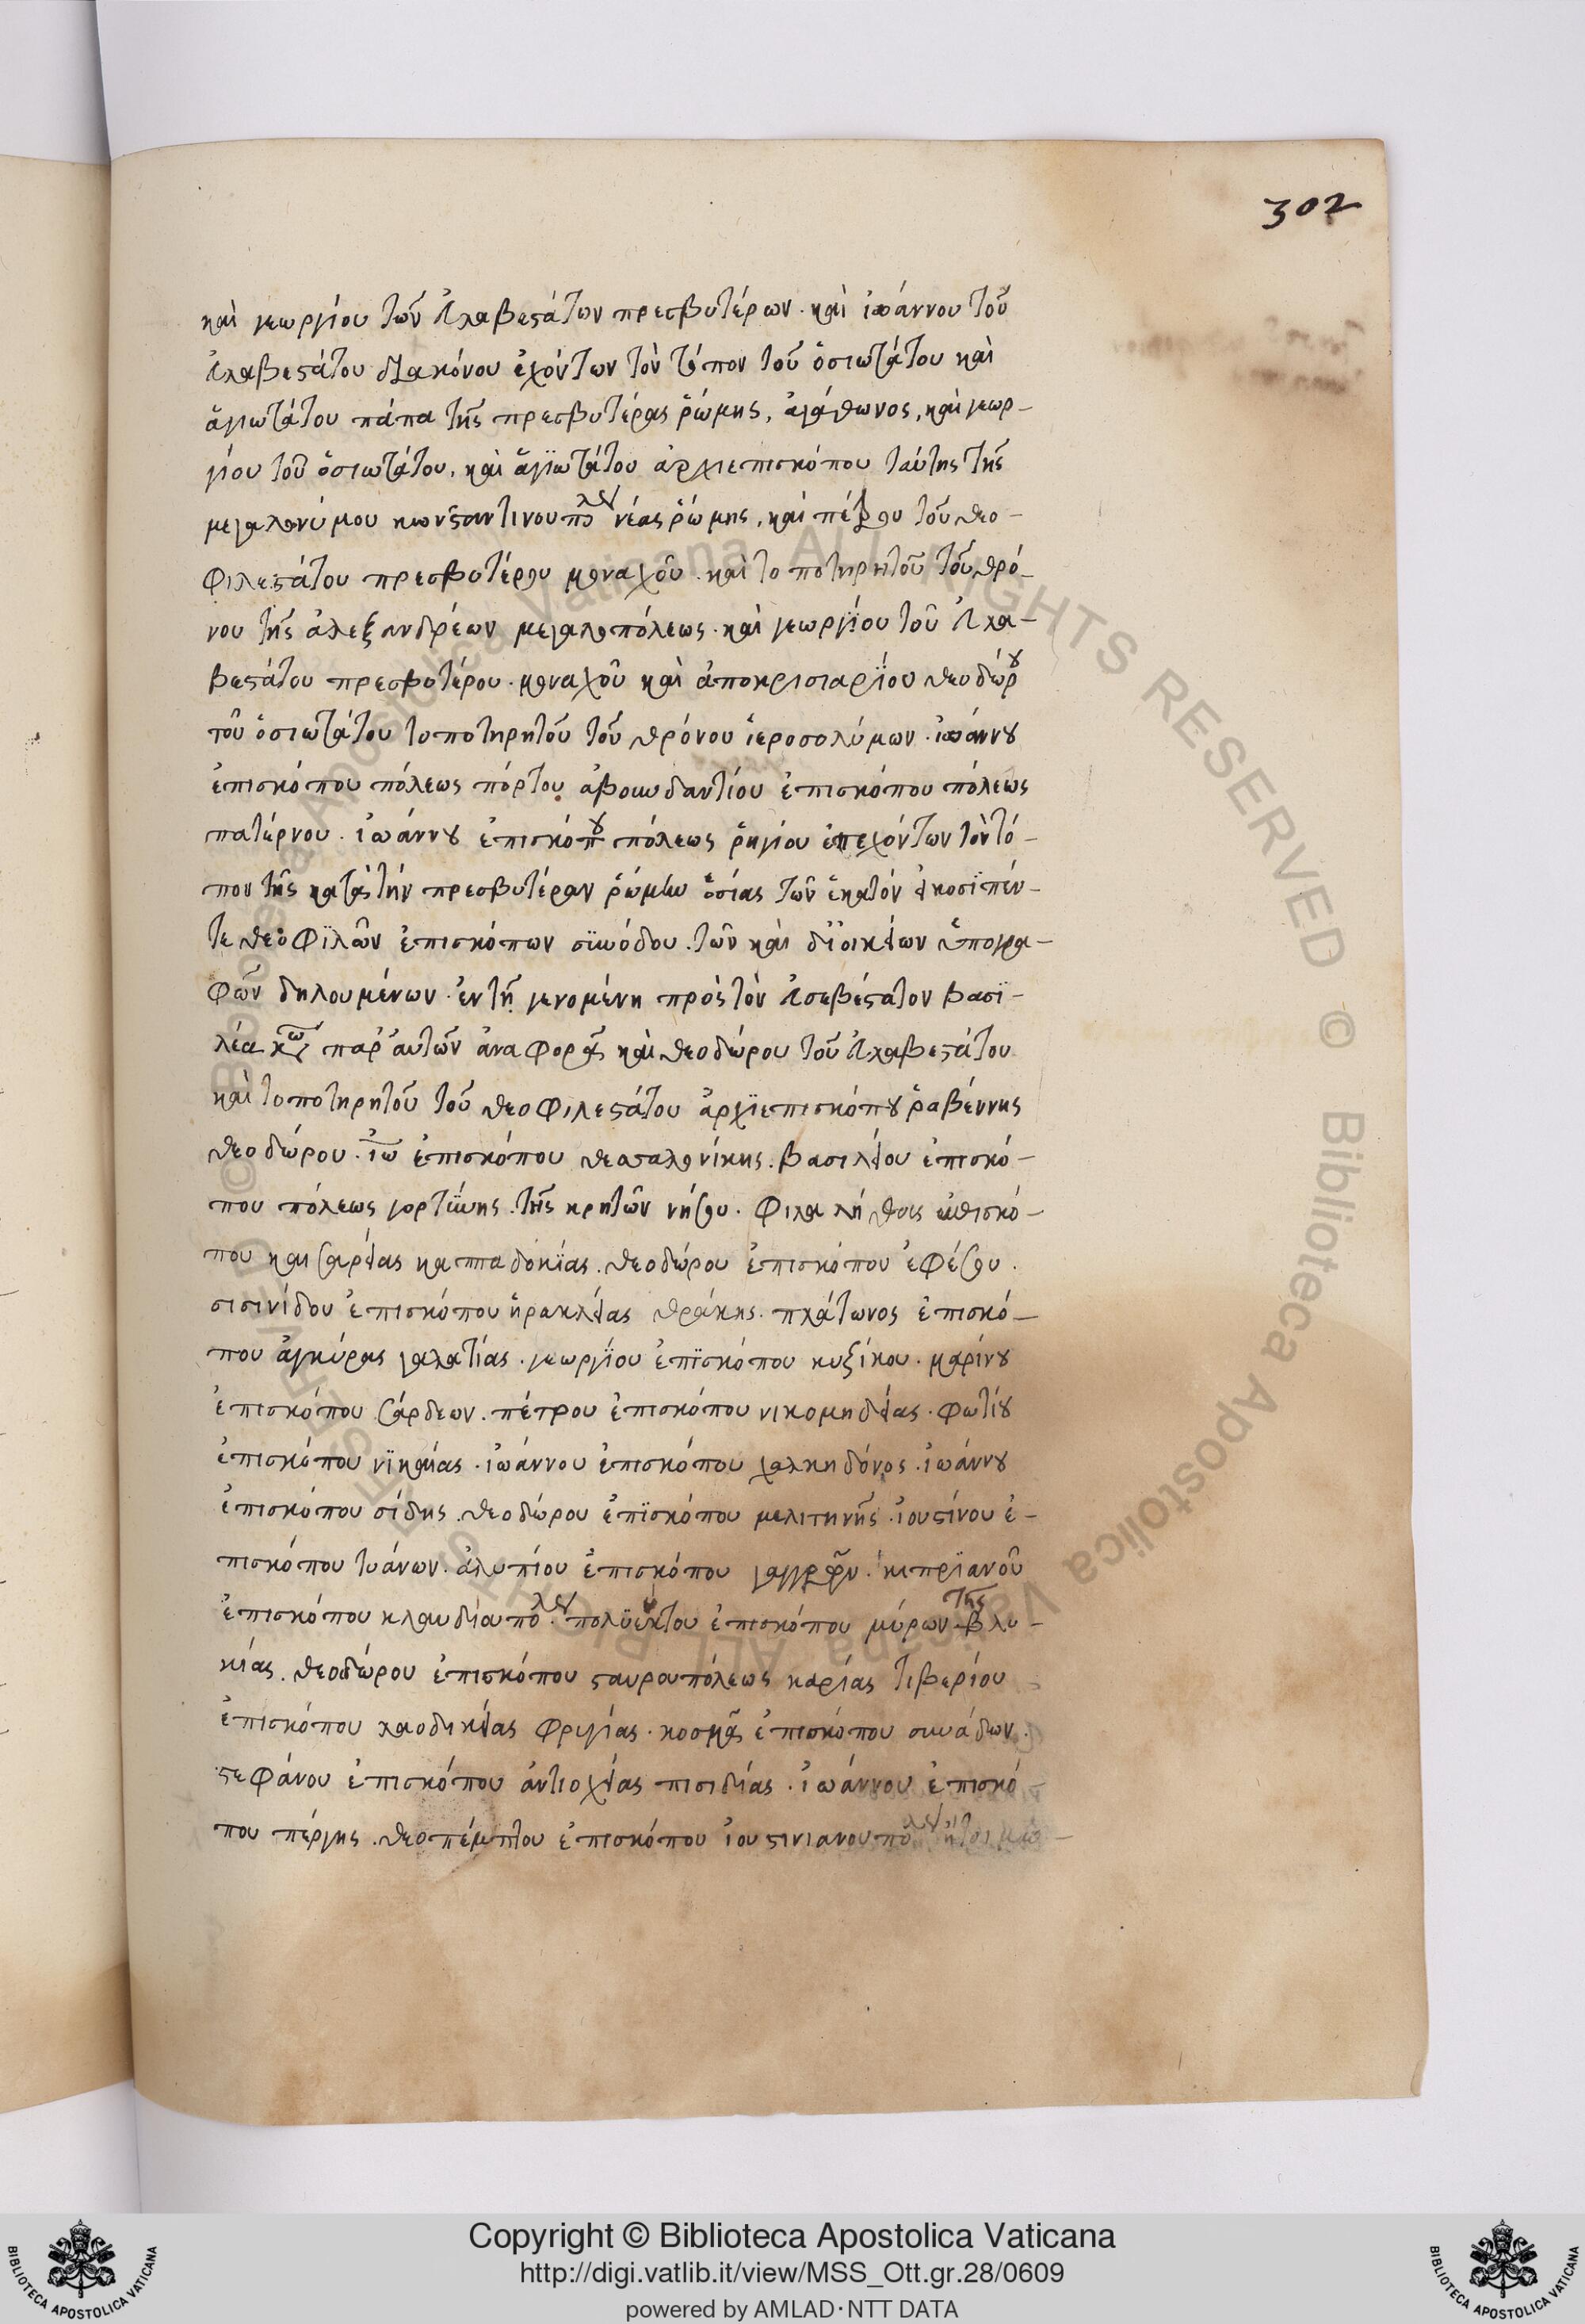 302
καὶ γεωργίου τῶν εὐλαβεστάτων πρεσβυτέρων· καὶ ἰωάννου τοῦ
εὐλαβεστάτου διακόνου ἐχόντων τὸν τόπον τοῦ ὁσιωτάτου καὶ
ἁγιωτάτου πάπα τῆς πρεσβυτέρας ῥώμης, ἀγάθωνος, καὶ γεωρ-
γίου τοῦ ὁσιωτάτου, καὶ ἁγϊωτάτου ἀρχιεπισκόπου ταύτης τῆς
μεγαλονύμου κωνσταντινουπόλεως νέας ῥώμης, καὶ πέτρου τοῦ θεο-
φιλεστάτου πρεσβυτέρου μοναχοῦ. καὶ τοποτηρητοῦ τοῦ θρό-
νου τῆς ἀλεξανδρέων μεγαλοπόλεως· καὶ γεωργΐου τοῦ εὐλα-
βεστάτου πρεσβυτέρου· μοναχοῦ καὶ ἀποκρισιαρΐου θεοδώρου
τοῦ ὁσιωτάτου τοποτηρητοῦ τοῦ θρόνου ἱεροσολύμων· ἰωάννου
ἐπισκόπου πόλεως πόρτου ἀβουνδαντίου ἐπισκόπου πόλεως
πατέρνου· ἰωάννου ἐπισκόπου πόλεως ῥηγίου ἐπεχόντων τὸν τό-
πον τῆς κατὰ τήν πρεσβυτέραν ῥώμην ὁσίας τῶν ἑκατόν εἰκοσϊπέν-
τε θεοφϊλῶν ἐπισκόπων σϋνόδου. τῶν καὶ δϊοικείων ὑπογρα-
φῶν δηλουμένων· ἐν τῇ γενομένη πρὸς τὸν εὐσεβέστατον βασϊ-
λέα κων παρ' αὐτῶν ἀναφορᾶς καὶ θεοδώρου τοῦ εὐλαβεστάτου
καὶ τοποτηρητοῦ τοῦ θεοφιλεστάτου ἀρχϊεπισκόπου ῥαβέννης
θεοδώρου· ἰω ἐπισκόπου θεσσαλονίκης. βασιλείου ἐπισκό-
που πόλεως γορτΰνης. τῆς κρητῶν νήσου. φιλαλήθους ἐπισκό-
που καισαρείας καππαδοκίας. θεοδώρου ἐπισκόπου ἐφέσου.
σισινίδου ἐπισκόπου ἡρακλείας θράκης. πλάτωνος ἐπισκό-
που ἀγκύρας γαλατίας. γεωργΐου ἐπϊσκόπου κυζίκου. μαρίνου
ἐπισκόπου σάρδεων. πέτρου ἐπισκόπου νικομηδείας. φωτίου
ἐπισκόπου νϊκαίας. ἰωάννου ἐπισκόπου χαλκηδόνος. ἰωάννου
ἐπισκόπου σίδης. θεοδώρου ἐπϊσκόπου μελιτηνῆς. ἰουστίνου ἐ-
πισκόπου τυάνων. ἀλυπίου ἐπισκόπου γαγγρῶν. κιπρϊανοῦ
ἐπισκόπου κλαυδϊαπόλεως. πολϋεύκτου ἐπισκόπου μύρων τῆς λυ-
κίας. θεοδώρου ἐπισκόπου σταυρουπόλεως καρίας τιβερίου
ἐπισκόπου λαοδικείας φριγίας· κοσμᾶ ἐπισκόπου συνάδων.
στεφάνου ἐπισκόπου ἀντιοχείας πισιδίας. ἰωάννου ἐπισκό
που πέργης. θεοπέμπτου ἐπισκόπου ἰουστινιανουπόλεως ἤτοι
Copyright © Biblioteca Apostolica Vaticana
http://digi.vatlib.it/view/MSS_Ott.gr.28/0609
powered by AMLAD·NTT DATA
BIBLIOTECA APOSTOLICA VATICANA
BIBLIOTECA APOSTOLICA VATICANA
© Biblioteca Apostolica Vaticana ALL RIGHTS RESERVED
© Biblioteca Apostolica Vaticana ALL RIGHTS RESERVED